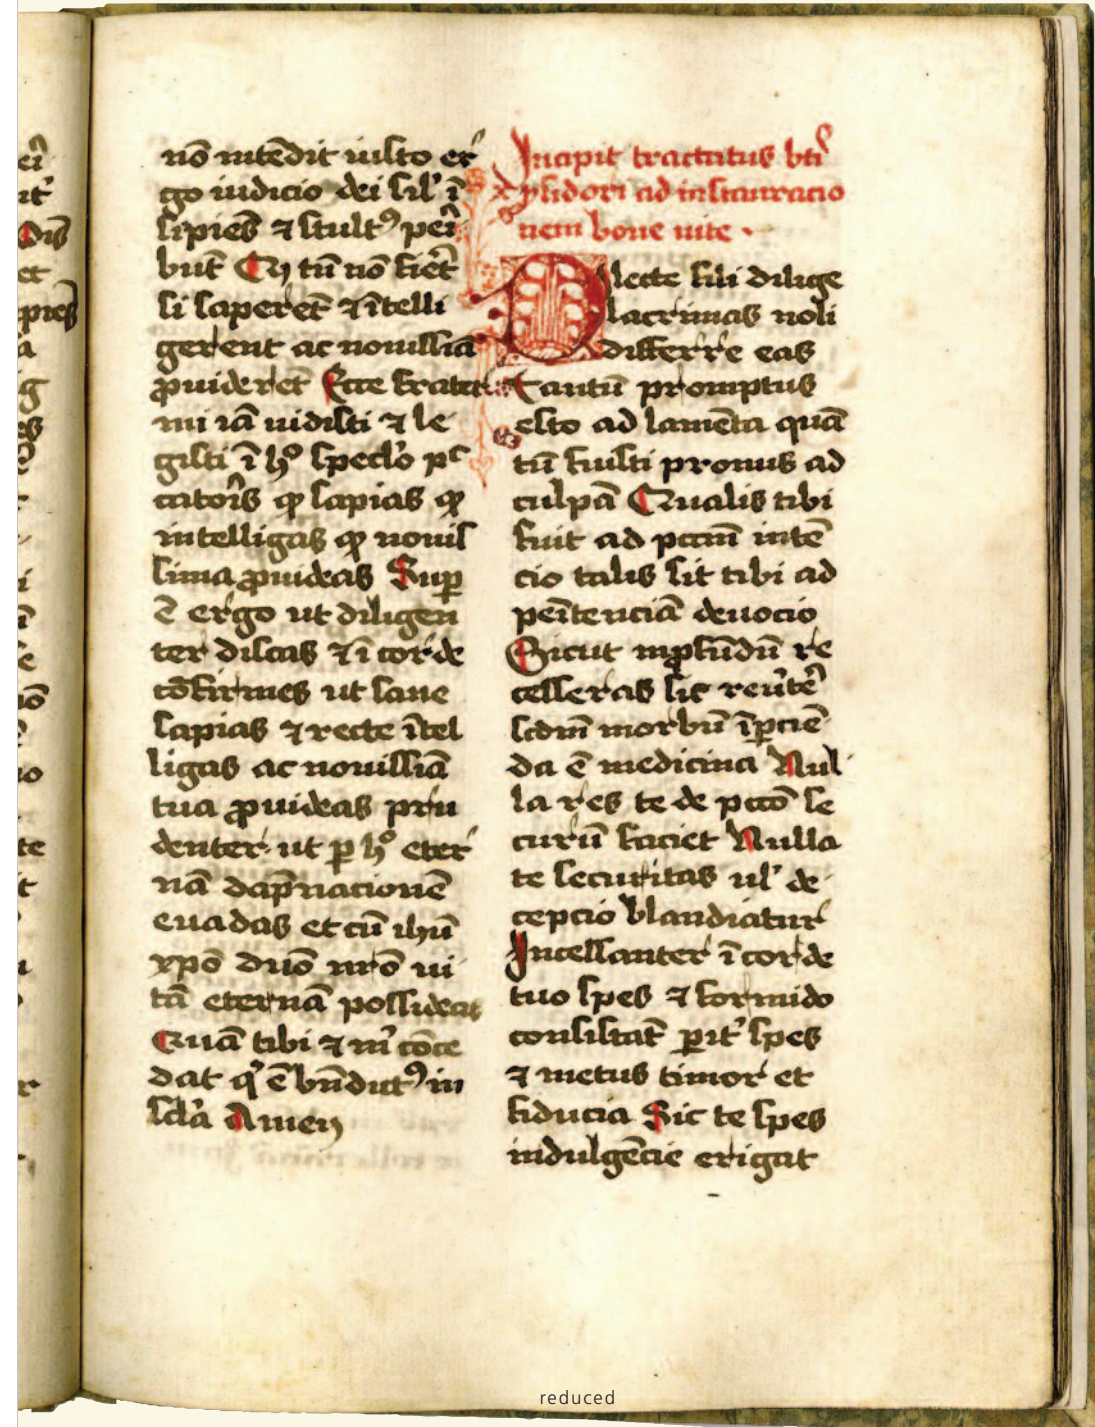 nō intēdit iusto er
go iudicio dei sil' ī
sipiēs ⁊ stultꝰ peri
būt Cū tn̄ nō fiēt
si saperēt ⁊ ītelli
gerent ac nouissīa
ꝓuiderēt Ecce frater
mi iā uidisti ⁊ le
gisti ī hͦ specl'o pᶜ
catorꝭ ꝙ sapias ꝙ
intelligas ꝙ nouis
sima ꝓuideas Suꝑ
ē ergo ut diligen
ter discas ⁊ ī corde
cōfirmes ut sane
sapias ⁊ recte ītel
ligas ac nouissīa
tua ꝓuideas pru
denter ut ꝑ hͦ eter
nā dāpnacionē
euadas et cū ihū
xpō dn̄o nr̄o ui
tā eternā possideas
Quā tibi ⁊ m' cōce
dat q' ē bn̄dictꝰ in
scl'a Amen
Incipit tractatus bti'
ysidori ad instauracio
nem bone uite ·
Dlecte fili dilige
lacrimas noli
differre eas
tantū promptus
esto ad lamēta quā
tū fuisti pronus ad
culpā Qualis tibi
fuit ad pccm̄ intē
cio talis sit tibi ad
penītenciā deuocio
Sicut in ꝓfūdū re
cesseras sic reu'tē'
scdm̄ morbū īpciē
da ē medicina Nul
la res te de pccō se
curū faciet Nulla
te securitas ul' de
cepcio blandiatur
Incessanter ī corde
tuo spes ⁊ formido
consistāt ꝑit' spes
⁊ metus timor et
fiducia Sic te spes
indulgēcie erigat
reduced